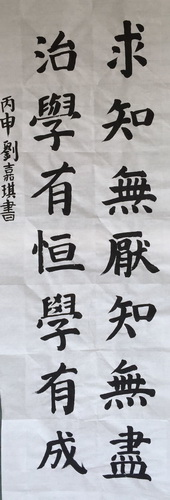 求知無厭知無盡
治學有恒學有成
丙申劉嘉琪書